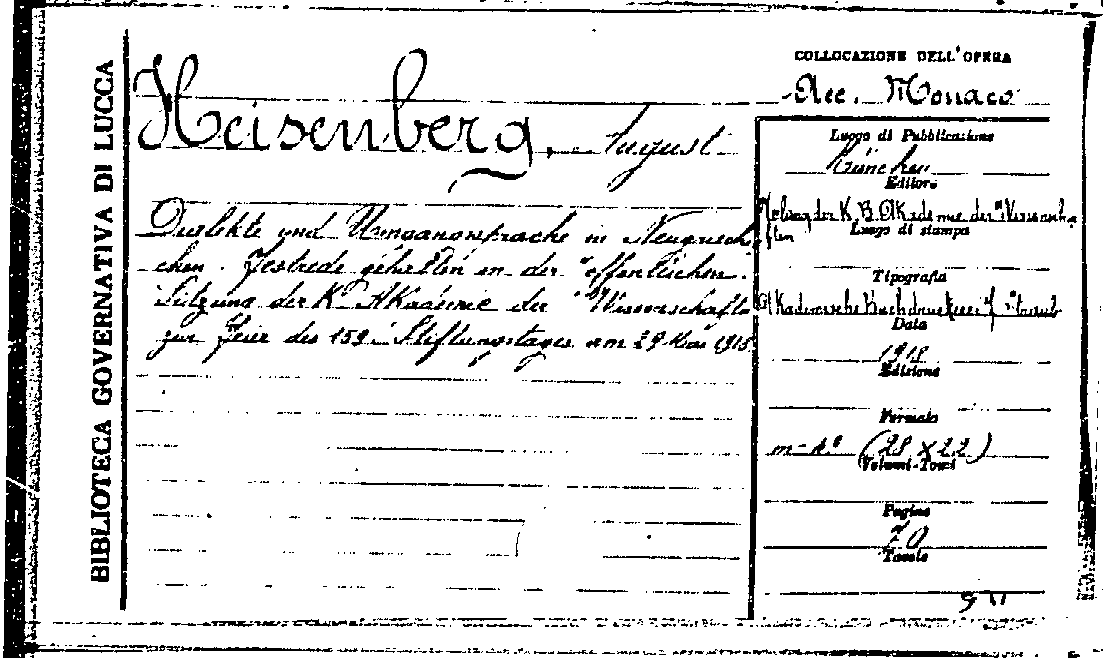 BIBLIOTECA GOVERNATIVA DI LUCCA
Heisenberg, August
Dialekte und Umgangssprache in Neugriech
chen. Festrede gehalten in der öffentlichen
Sitzung der K. Akademie der Wissenschafte
zur Feier des 159. Stiftungstages am 29 Mai 1918
COLLOCAZIONE DELL'OPERA
Acc. Monaco
Luogo di Pubblicazione
München
Editore
Verlag der K. B. Akademie der Wissenscha
ften
Luogo di stampa
Tipografia
Akademische Buchdruckerei F. Straub
Data
1918
Edizione
Formato
in-4° (28 x 22)
Volumi-Tomi
Pagine
70
Tavole